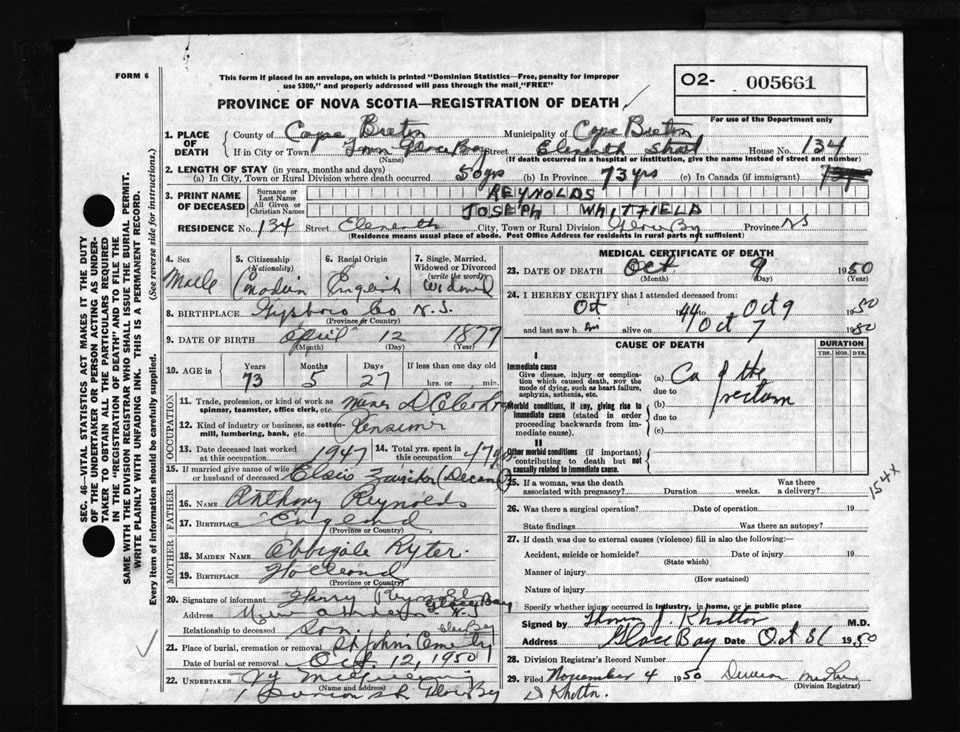 FORM 6
This form if placed in an envelope, on which is printed "Dominion Statistics—Free, penalty for improper
use $300," and properly addressed will pass through the mail "FREE"
O2- 005661
For use of the Department only
PROVINCE OF NOVA SCOTIA—REGISTRATION OF DEATH
1. PLACE OF DEATH County of Cape Breton Municipality of Cape Breton
If in City or Town Town Glace Bay Street Eleventh Street House No. 134
(Name) (If death occurred in a hospital or institution, give the name instead of street and number)
2. LENGTH OF STAY (in years, months and days)
(a) In City, Town or Rural Division where death occurred 50 yrs (b) In Province 73 yrs (c) In Canada (if immigrant)
3. PRINT NAME OF DECEASED Surname or Last Name REYNOLDS
All Given or Christian Names JOSEPH WHITFIELD
RESIDENCE No. 134 Street Eleventh City, Town or Rural Division Glace Bay Province NS
(Residence means usual place of abode. Post Office Address for residents in rural parts not sufficient)
4. Sex Male
5. Citizenship (Nationality) Canadian
6. Racial Origin English
7. Single, Married, Widowed or Divorced (write the word) Widowed
8. BIRTHPLACE Guysboro Co N.S.
(Province or Country)
9. DATE OF BIRTH April 12 1877
(Month) (Day) (Year)
10. AGE in Years Months Days If less than one day old
73 5 27 hrs. or min.
OCCUPATION
11. Trade, profession, or kind of work as spinner, teamster, office clerk, etc. Miner
12. Kind of industry or business, as cotton-mill, lumbering, bank, etc. Pensioner
13. Date deceased last worked at this occupation 1947 14. Total yrs. spent in this occupation 47 yrs
15. If married give name of wife or husband of deceased Elsie
FATHER
16. NAME Anthony Reynolds
17. BIRTHPLACE England
(Province or Country)
MOTHER
18. MAIDEN NAME Abbigale Ryter
19. BIRTHPLACE Holland
(Province or Country)
20. Signature of informant Harry Reynolds
Address Glace Bay
Relationship to deceased Son
21. Place of burial, cremation or removal St. Johns Cemetery Glace Bay
Date of burial or removal Oct. 12, 1950
22. UNDERTAKER
(Name and address)
Glace Bay
MEDICAL CERTIFICATE OF DEATH
23. DATE OF DEATH Oct 9 1950
(Month) (Day) (Year)
24. I HEREBY CERTIFY that I attended deceased from:
Oct 44 to Oct 9 1950
and last saw him alive on Oct 7 1950
CAUSE OF DEATH DURATION
YRS. MOS. DYS.
I
Immediate cause (a) Ca of the rectum
Give disease, injury or complication which caused death, NOT the mode of dying, such as heart failure, asphyxia, asthenia, etc.
due to
Morbid conditions, if any, giving rise to immediate cause (stated in order proceeding backwards from immediate cause). (b)
due to
(c)
II
Other morbid conditions (if important) contributing to death but not causally related to immediate cause.
154X
25. If a woman, was the death associated with pregnancy? Duration weeks. Was there a delivery?
26. Was there a surgical operation? Date of operation 19
State findings Was there an autopsy?
27. If death was due to external causes (violence) fill in also the following:
Accident, suicide or homicide? Date of injury 19
(State which)
Manner of injury
(How sustained)
Nature of injury
Specify whether injury occurred in industry, in home, or in public place
Signed by M.D.
Address Glace Bay Date Oct 31 1950
28. Division Registrar's Record Number
29. Filed November 4 1950
(Division Registrar)
SEC. 46—VITAL STATISTICS ACT MAKES IT THE DUTY
OF THE UNDERTAKER OR PERSON ACTING AS UNDER-
TAKER TO OBTAIN ALL THE PARTICULARS REQUIRED
IN THE "REGISTRATION OF DEATH" AND TO FILE THE
SAME WITH THE DIVISION REGISTRAR WHO SHALL ISSUE THE BURIAL PERMIT.
WRITE PLAINLY WITH UNFADING INK. THIS IS A PERMANENT RECORD.
Every item of information should be carefully supplied. (See reverse side for instructions.)